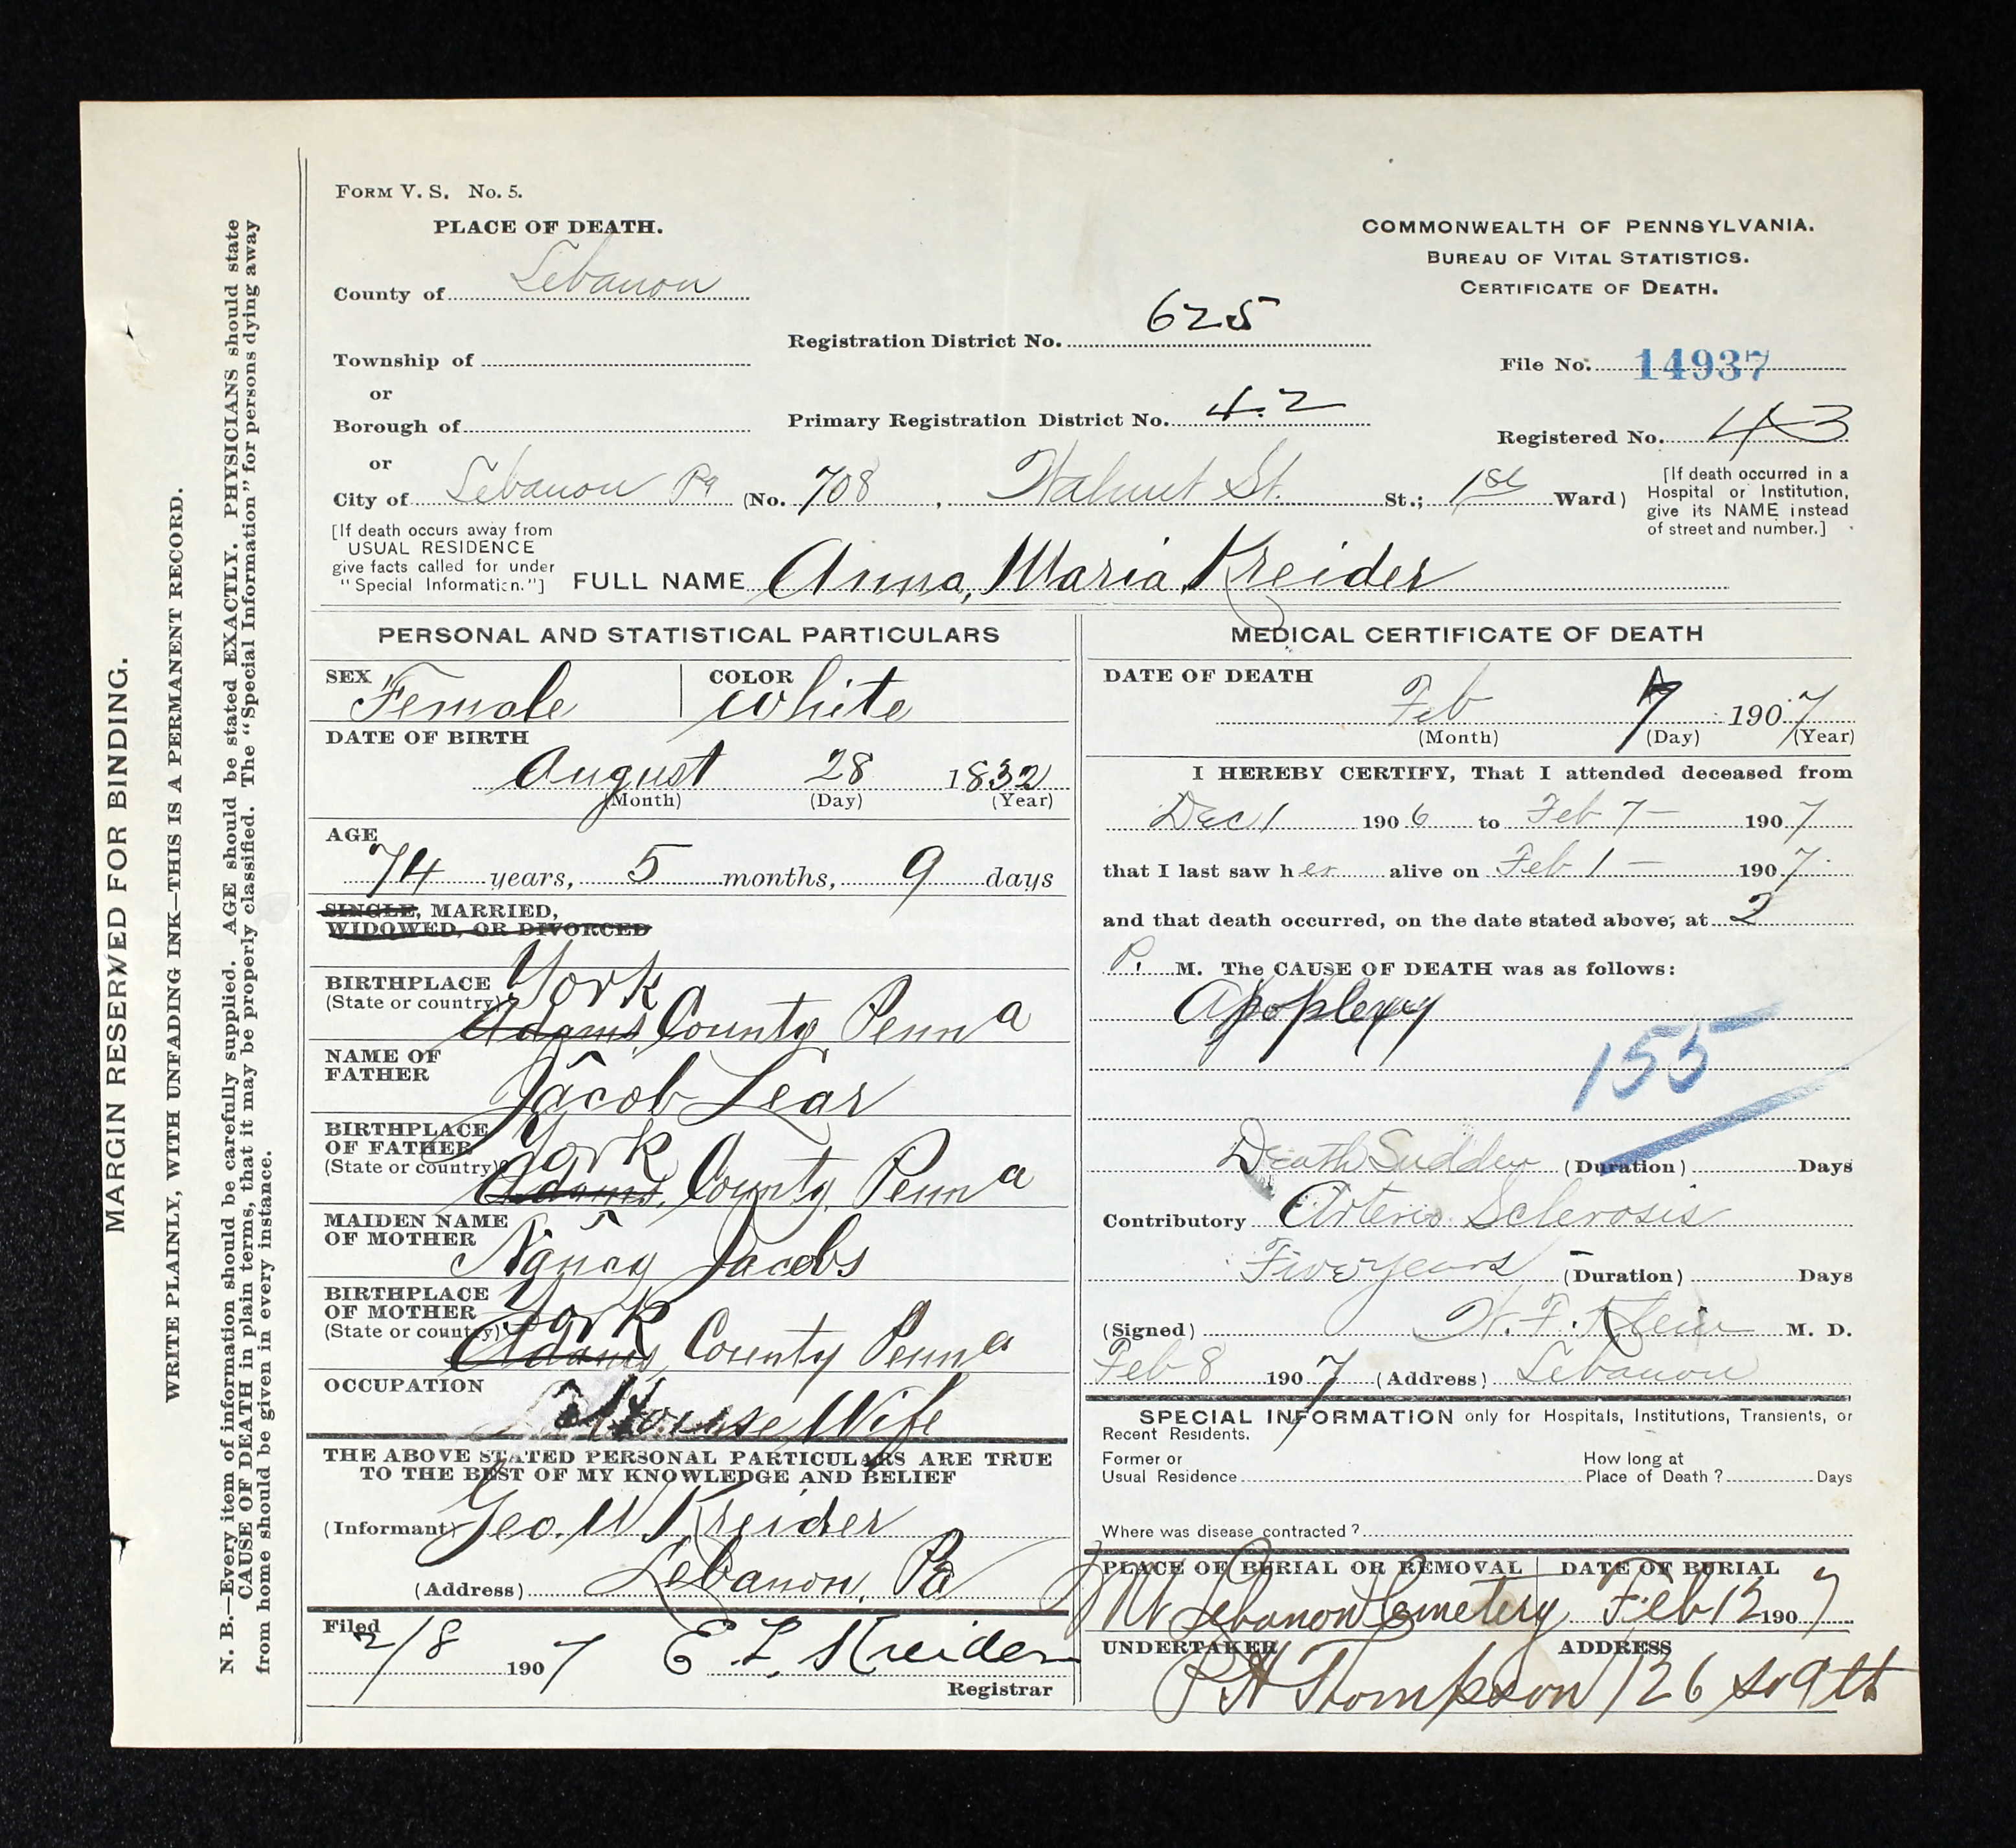 MARGIN RESERVED FOR BINDING.
WRITE PLAINLY, WITH UNFADING INK—THIS IS A PERMANENT RECORD.
N. B.—Every item of information should be carefully supplied. AGE should be stated EXACTLY. PHYSICIANS should state
CAUSE OF DEATH in plain terms, that it may be properly classified. The "Special Information" for persons dying away
from home should be given in every instance.
FORM V. S. No. 5.
PLACE OF DEATH.
County of Lebanon
Township of
or
Borough of
or
City of Lebanon Pa (No. 708, Walnut St. St.; 1st Ward)
[If death occurs away from
USUAL RESIDENCE
give facts called for under
"Special Information."]
Registration District No. 625
Primary Registration District No. 42
COMMONWEALTH OF PENNSYLVANIA.
BUREAU OF VITAL STATISTICS.
CERTIFICATE OF DEATH.
File No. 14937
Registered No. 43
[If death occurred in a
Hospital or Institution,
give its NAME instead
of street and number.]
FULL NAME Anna, Maria Kreider
PERSONAL AND STATISTICAL PARTICULARS
SEX Female
COLOR White
DATE OF BIRTH
August 28 1832
(Month) (Day) (Year)
AGE
74 years, 5 months, 9 days
SINGLE, MARRIED,
WIDOWED, OR DIVORCED
BIRTHPLACE York
(State or country) Adams County Penna
NAME OF
FATHER Jacob Lear
BIRTHPLACE
OF FATHER York
(State or country) Adams, County, Penna
MAIDEN NAME
OF MOTHER Nancy Jacobs
BIRTHPLACE
OF MOTHER York
(State or country) Adams, County Penna
OCCUPATION
House Wife
THE ABOVE STATED PERSONAL PARTICULARS ARE TRUE
TO THE BEST OF MY KNOWLEDGE AND BELIEF
(Informant) Geo. W Kreider
(Address) Lebanon, Pa
Filed
2/8 1907 E L Kreider
Registrar
MEDICAL CERTIFICATE OF DEATH
DATE OF DEATH
Feb 7 1907
(Month) (Day) (Year)
I HEREBY CERTIFY, That I attended deceased from
Dec 1 1906 to Feb 7 – 1907
that I last saw her alive on Feb 1 – 1907
and that death occurred, on the date stated above, at 2
P. M. The CAUSE OF DEATH was as follows:
Apoplexy
155
Death Sudden (Duration) Days
Contributory Arterio Sclerosis
Five years (Duration) Days
(Signed) W. F. Klein M. D.
Feb 8 1907 (Address) Lebanon
SPECIAL INFORMATION only for Hospitals, Institutions, Transients, or
Recent Residents.
Former or
Usual Residence
How long at
Place of Death? Days
Where was disease contracted?
PLACE OF BURIAL OR REMOVAL
Mt Lebanon Cemetery
DATE OF BURIAL
Feb 12 1907
UNDERTAKER
P H Thompson
ADDRESS
126 So 9th